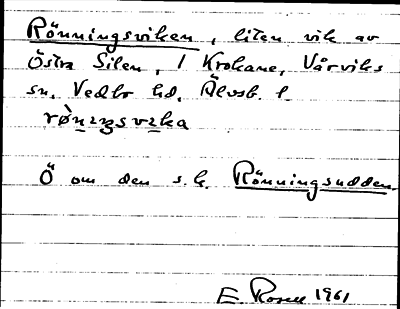 Rönningsviken, liten vik av
Östra Silen, i Krokane, Vårviks
sn, Vedbo hd, Älvsb. l.
rö̀nıŋsvıka
Ö om den s.k. Rönningsudden.
E. Rosell 1961